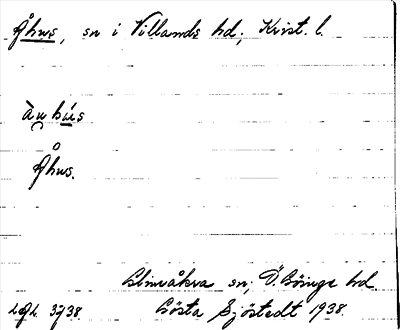 Åhus, sn i Villands hd; Krist. l.
àu hús
Åhus.
Elinvåkra sn; Ö. Göinge hd
Gösta Sjöstedt 1938.